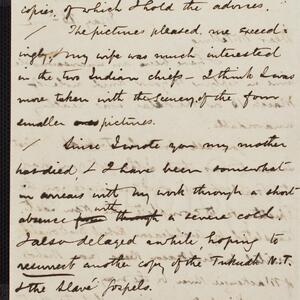 copies, of which I hold the advices.
/ The pictures pleased me exceed-
ingly, my wife was much interested
in the two Indian chiefs – I think I was
more taken with the scenery, of the four
smaller pictures.
/ Since I wrote you my mother
has died, & I have been somewhat
in arrears with my work through a short
absence with a severe cold
I also delayed awhile, hoping to
resurrect another copy of the Tukudh N.T.
& the Slavé Gospels.